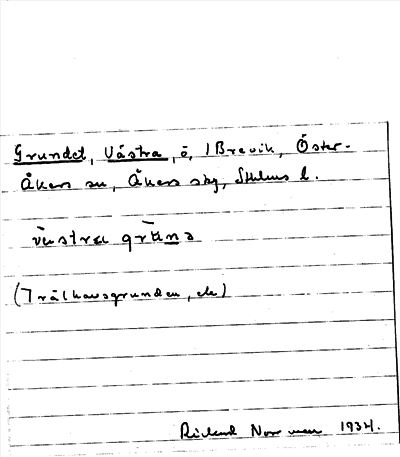 Grundet, Västra, ö, /Brevik, Öster-
Åkers sn, Åkers skg, Sthlms l.
vè̄stra grūna
(Trälhavsgrunden, ek)
Rickard Norrman 1934.